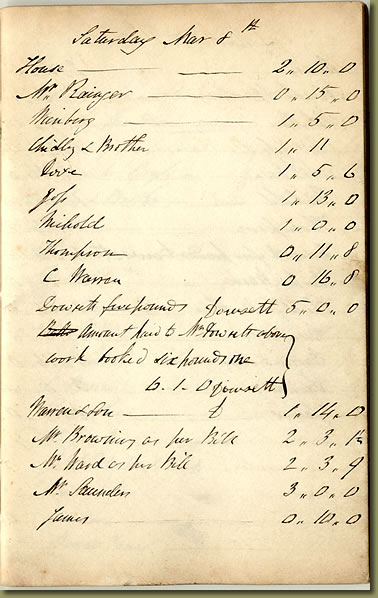 Saturday Mar 8th
House 2 „ 10 „ 0
Mr Rainger 0 „ 15 „ 0
1 „ 5 „ 0
Chidley & Brother 1 „ 11
Dove 1 „ 5 „ 6
Goss 1 „ 13 „ 0
Nichold 1 „ 0 „ 0
Thompson 0 „ 11 „ 8
C Warren 0 16 „ 8
Dowsett five pounds Jowsett 5 „ 0 „ 0
Amount paid to Mr Dowsett above
work booked six pounds one
6 . 1 . 0 Jowsett
Warren & Son 1 „ 14 „ 0
Mr Browning as per Bill 2 „ 3 „ 1½
Mr Ward as per Bill 2 „ 3 „ 9
Mr Saunders 3 „ 0 „ 0
James 0 „ 10 „ 0